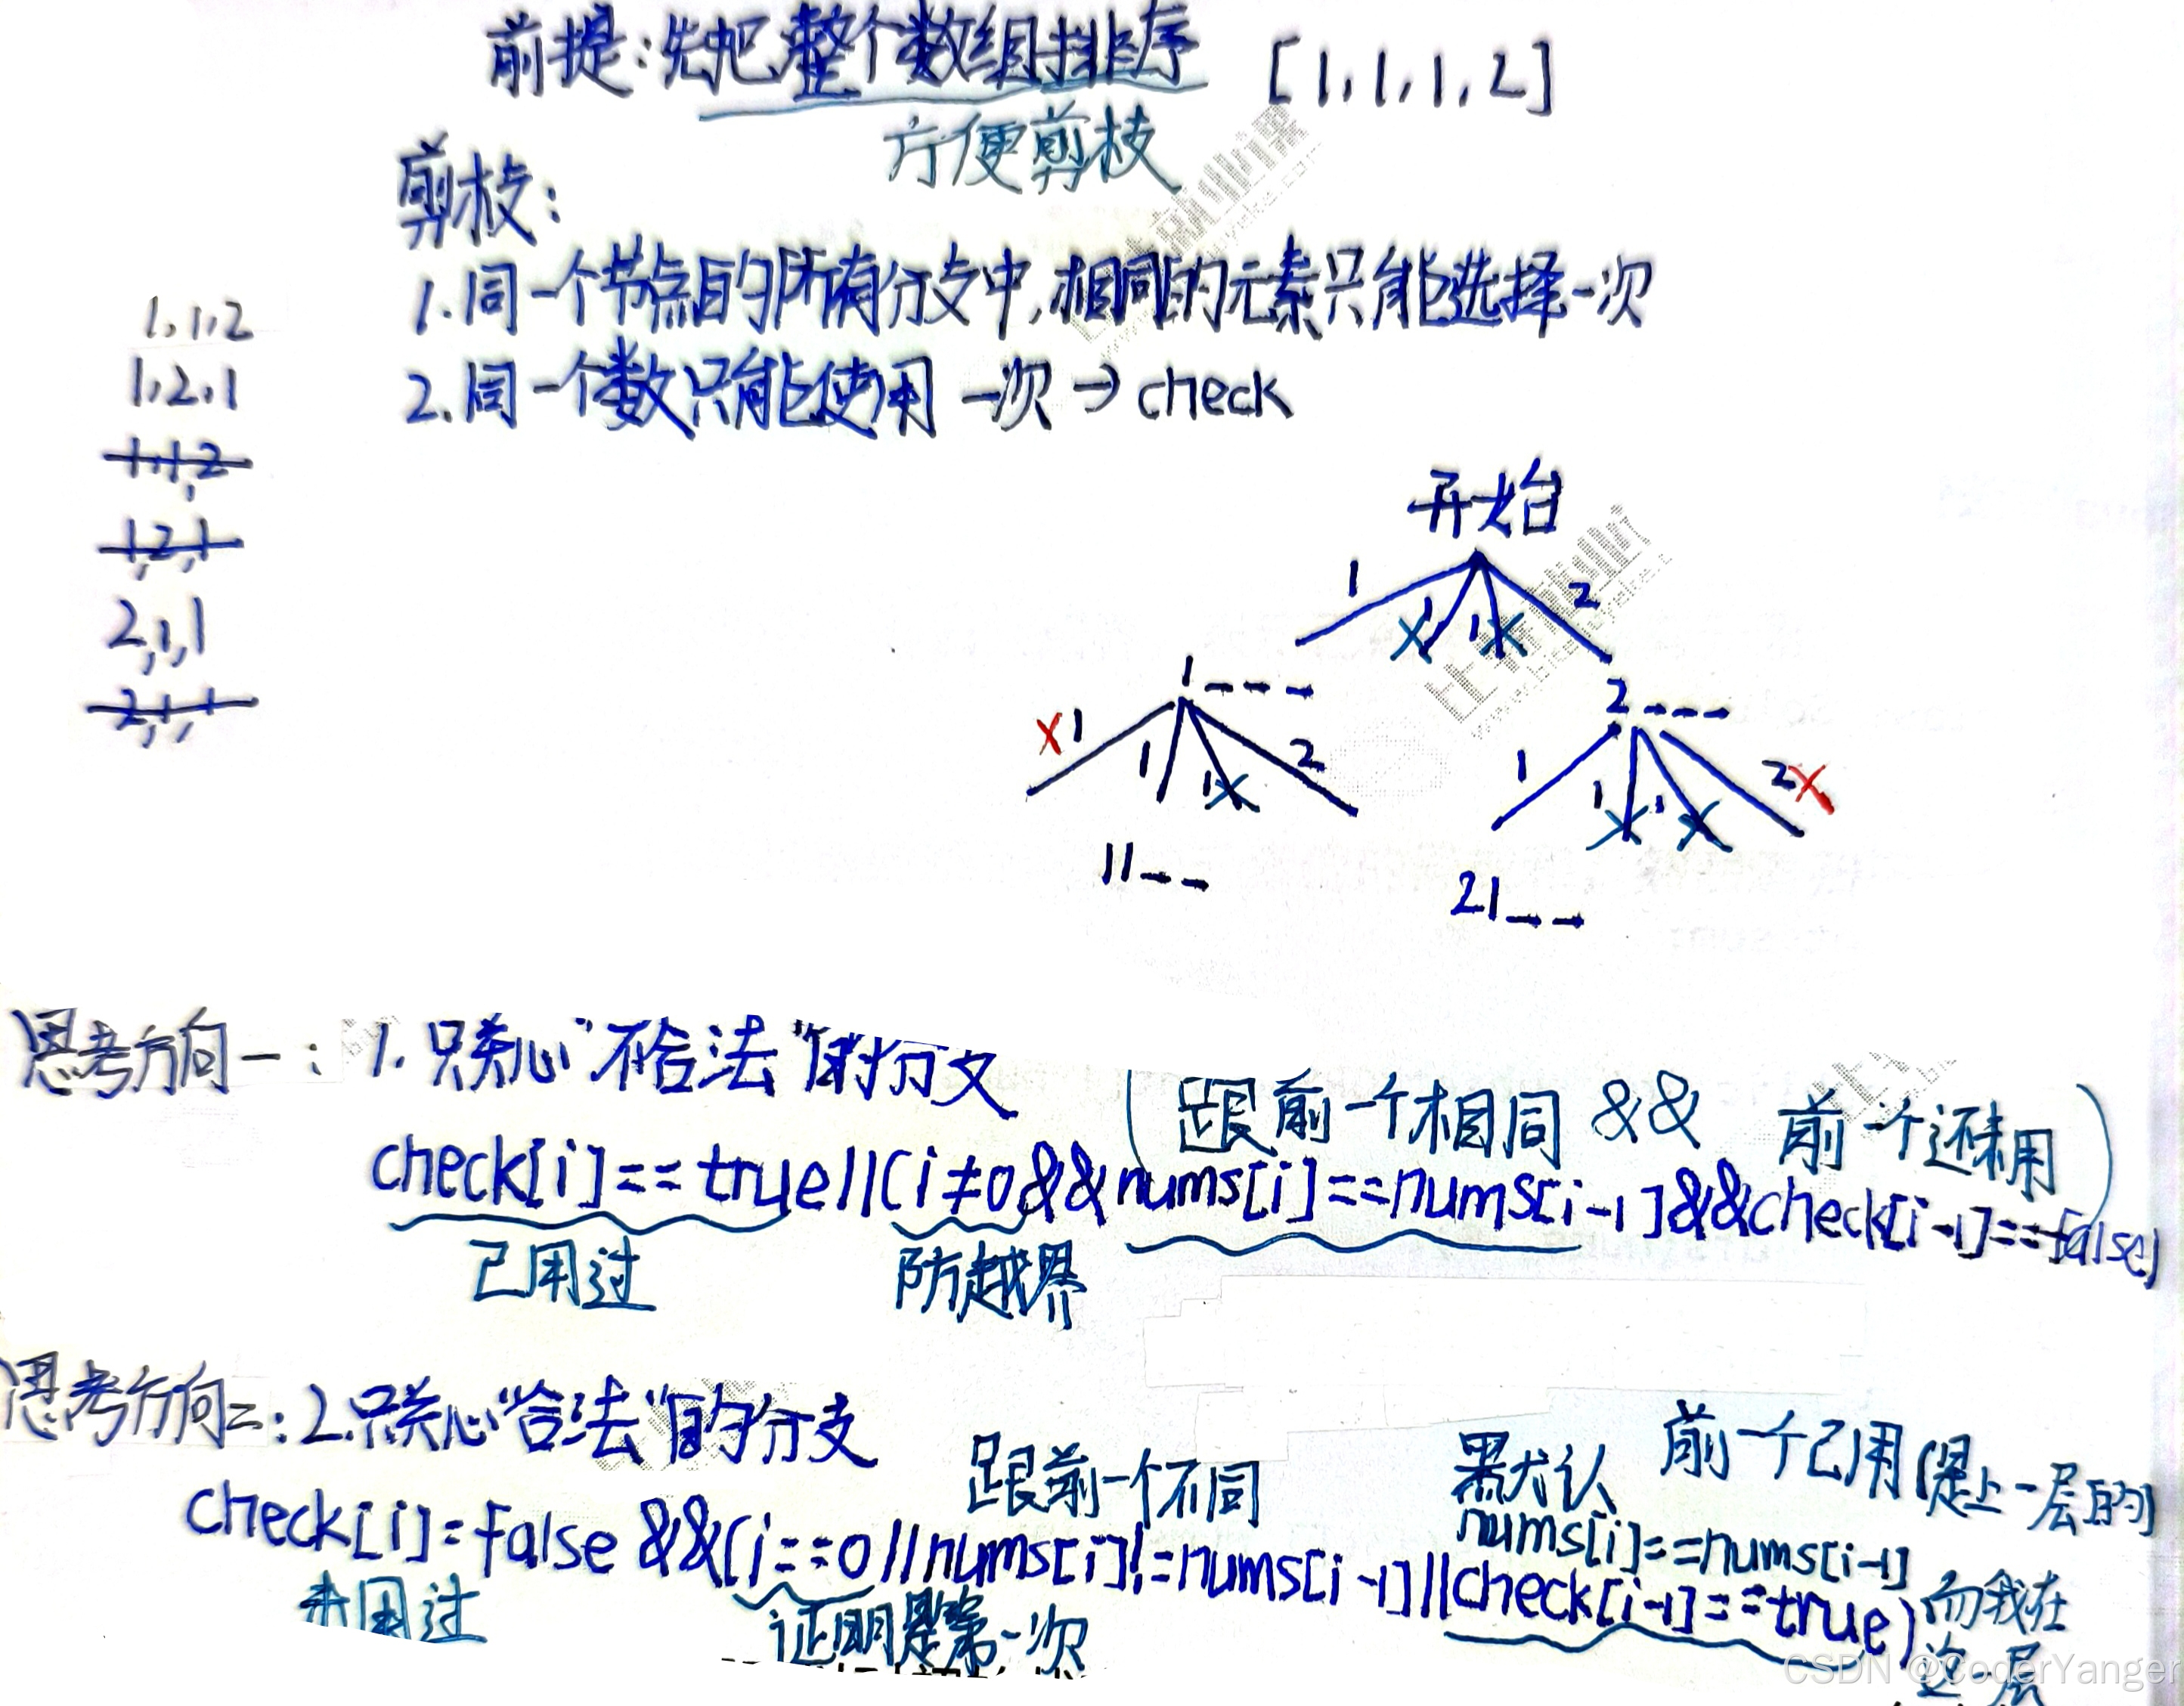 前提:先把整个数组排序 [1,1,1,2]
方便剪枝
剪枝:
1.同一个节点的所有分支中,相同的元素只能选择一次
2.同一个数只能使用一次→check
1,1,2
1,2,1
1,1,2
1,2,1
2,1,1
2,1,1
开始
1 1 X 1 X 2
1 _ _ _
X 1 1 1 X 2
2 _ _ _
1 1 X 1 X 2 X
11 _ _
21 _ _
思考方向一:1.只关心"不合法"的分支
(跟前一个相同 && 前一个还未用)
check[i]==true||(i≠0&&nums[i]==nums[i-1]&&check[i-1]==false)
已用过 防越界
思考方向二:2.只关心"合法"的分支
跟前一个不同 默认 前一个已用(是上一层的
nums[i]==nums[i-1]
check[i]=false &&(i==0||nums[i]!=nums[i-1]||check[i-1]==true) 而我在
未用过 证明是第一次 这一层
CSDN @CoderYanger